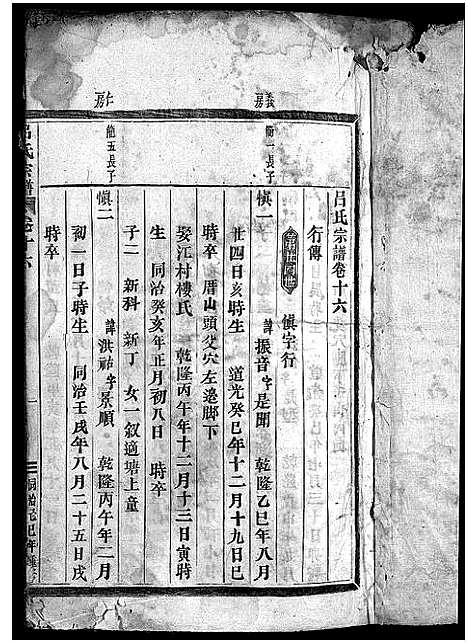 呂氏宗譜卷十六
行傳
慎字行
義房
衡一長子
慎一 諱振音字是聞 乾隆乙巳年八月
廿四日亥時生 道光癸巳年十二月十九日巳
時卒 厝山頭父穴左邊脚下
娶江村樓氏 乾隆丙午年十二月十三日寅時
生 同治癸亥年正月初八日 時卒
子二 新科 新丁 女一叙適塘上童
仁房
龍五長子
慎二 諱洪祐字景順 乾隆丙午年二月
初一日子時生 同治壬戌年八月二十五日戌
時卒
呂氏宗譜 卷十六
一
同治己巳年重